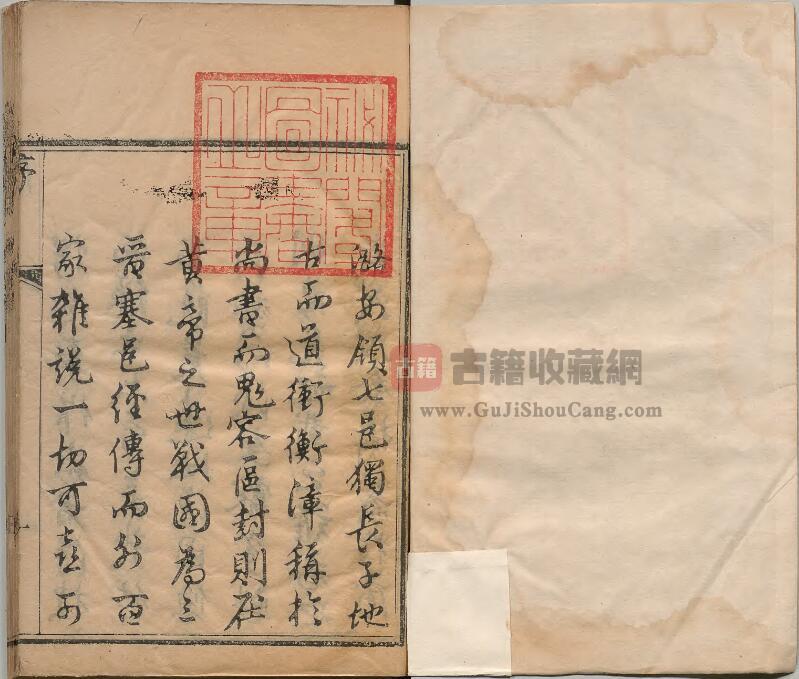 潞安領七邑獨長子地
古而道衝衡漳稱於
尚書而鬼容區封則在
黃帝之世戰國為三
晉塞邑經傳而外百
家雜說一切可喜可
序
古籍
古籍收藏網
www.GuJiShouCang.com